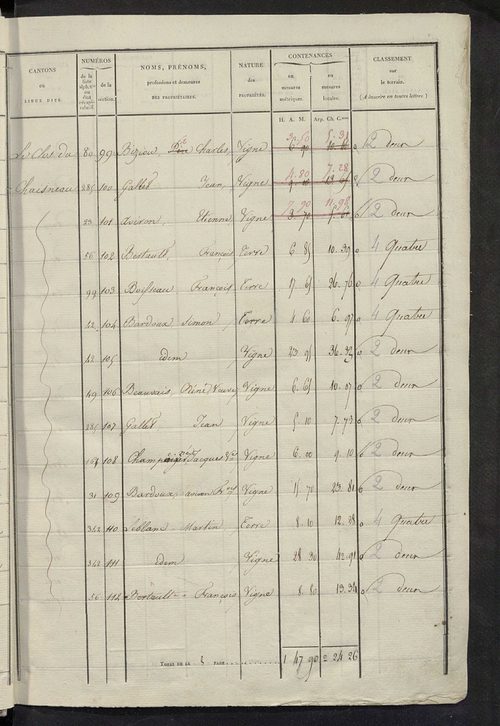 CANTONS
ou
LIEUX DITS.
NUMÉROS
de la section.
NOMS, PRÉNOMS,
professions et demeures
DES PROPRIÉTAIRES.
NATURE
des
PROPRIÉTÉS.
CONTENANCES
en
mesures
métriques.
en
mesures
locales.
H. A. M. Arp. Ch.
CLASSEMENT
sur
le terrain.
(A inscrire en toutes lettres)
Le Clos du 80 99 Charles, Vigne 2 deux
Chaisneau 285 100 Gallet Jean, Vigne 4.80 7.28 2 deux
23 101 Etienne, Vigne 7.90 2 deux
56 102 François Terre 6 85 10.39 4 Quatre
99 103 François Terre 4 Quatre
42 104 Bardoux Simon Terre 4 60 6.97 4 Quatre
42 105 idem Vigne 23 95 36.29 2 deux
49 106 Beauvais, René Veuve Vigne 6.65 10.07 2 deux
285 107 Gallet Jean Vigne 5.10 7.73 2 deux
108 Jacques Vve Vigne 6.00 9.10 2 deux
31 109 Bardoux Vigne 15 70 23.81 2 deux
342 110 Leblanc Martin, Terre 8 10 12.28 4 Quatre
342 111 idem Vigne 28 30 42.91 2 deux
56 112 François Vigne 8.80 13.34 2 deux
TOTAL DE LA 8 PAGE 1 47 90 2 24 26